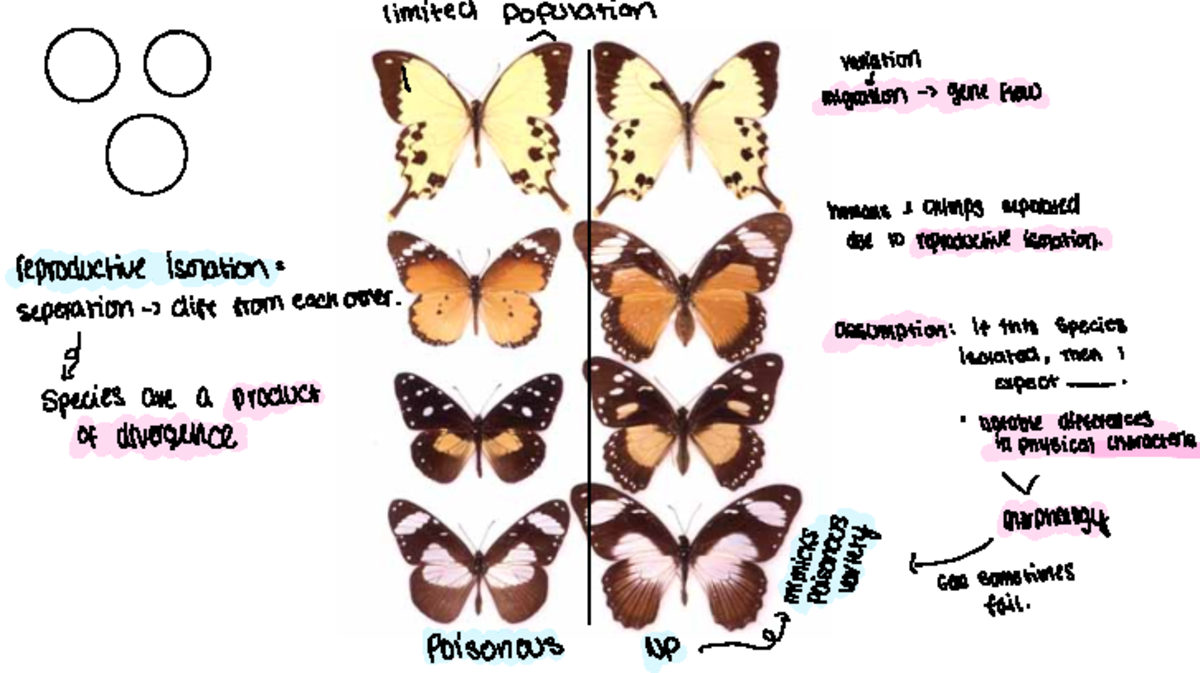 limited population
variation
migration -> gene flow
humans & chimps separated
due to reproductive isolation.
reproductive isolation =
seperation -> diff from each other.
Species are a product
of divergence
assumption: if this species
isolated, then i
expect ___.
• notable differences
in physical characteris
morphology
can sometimes
fail.
mimicks
poisonous
variety
Poisonous
NP